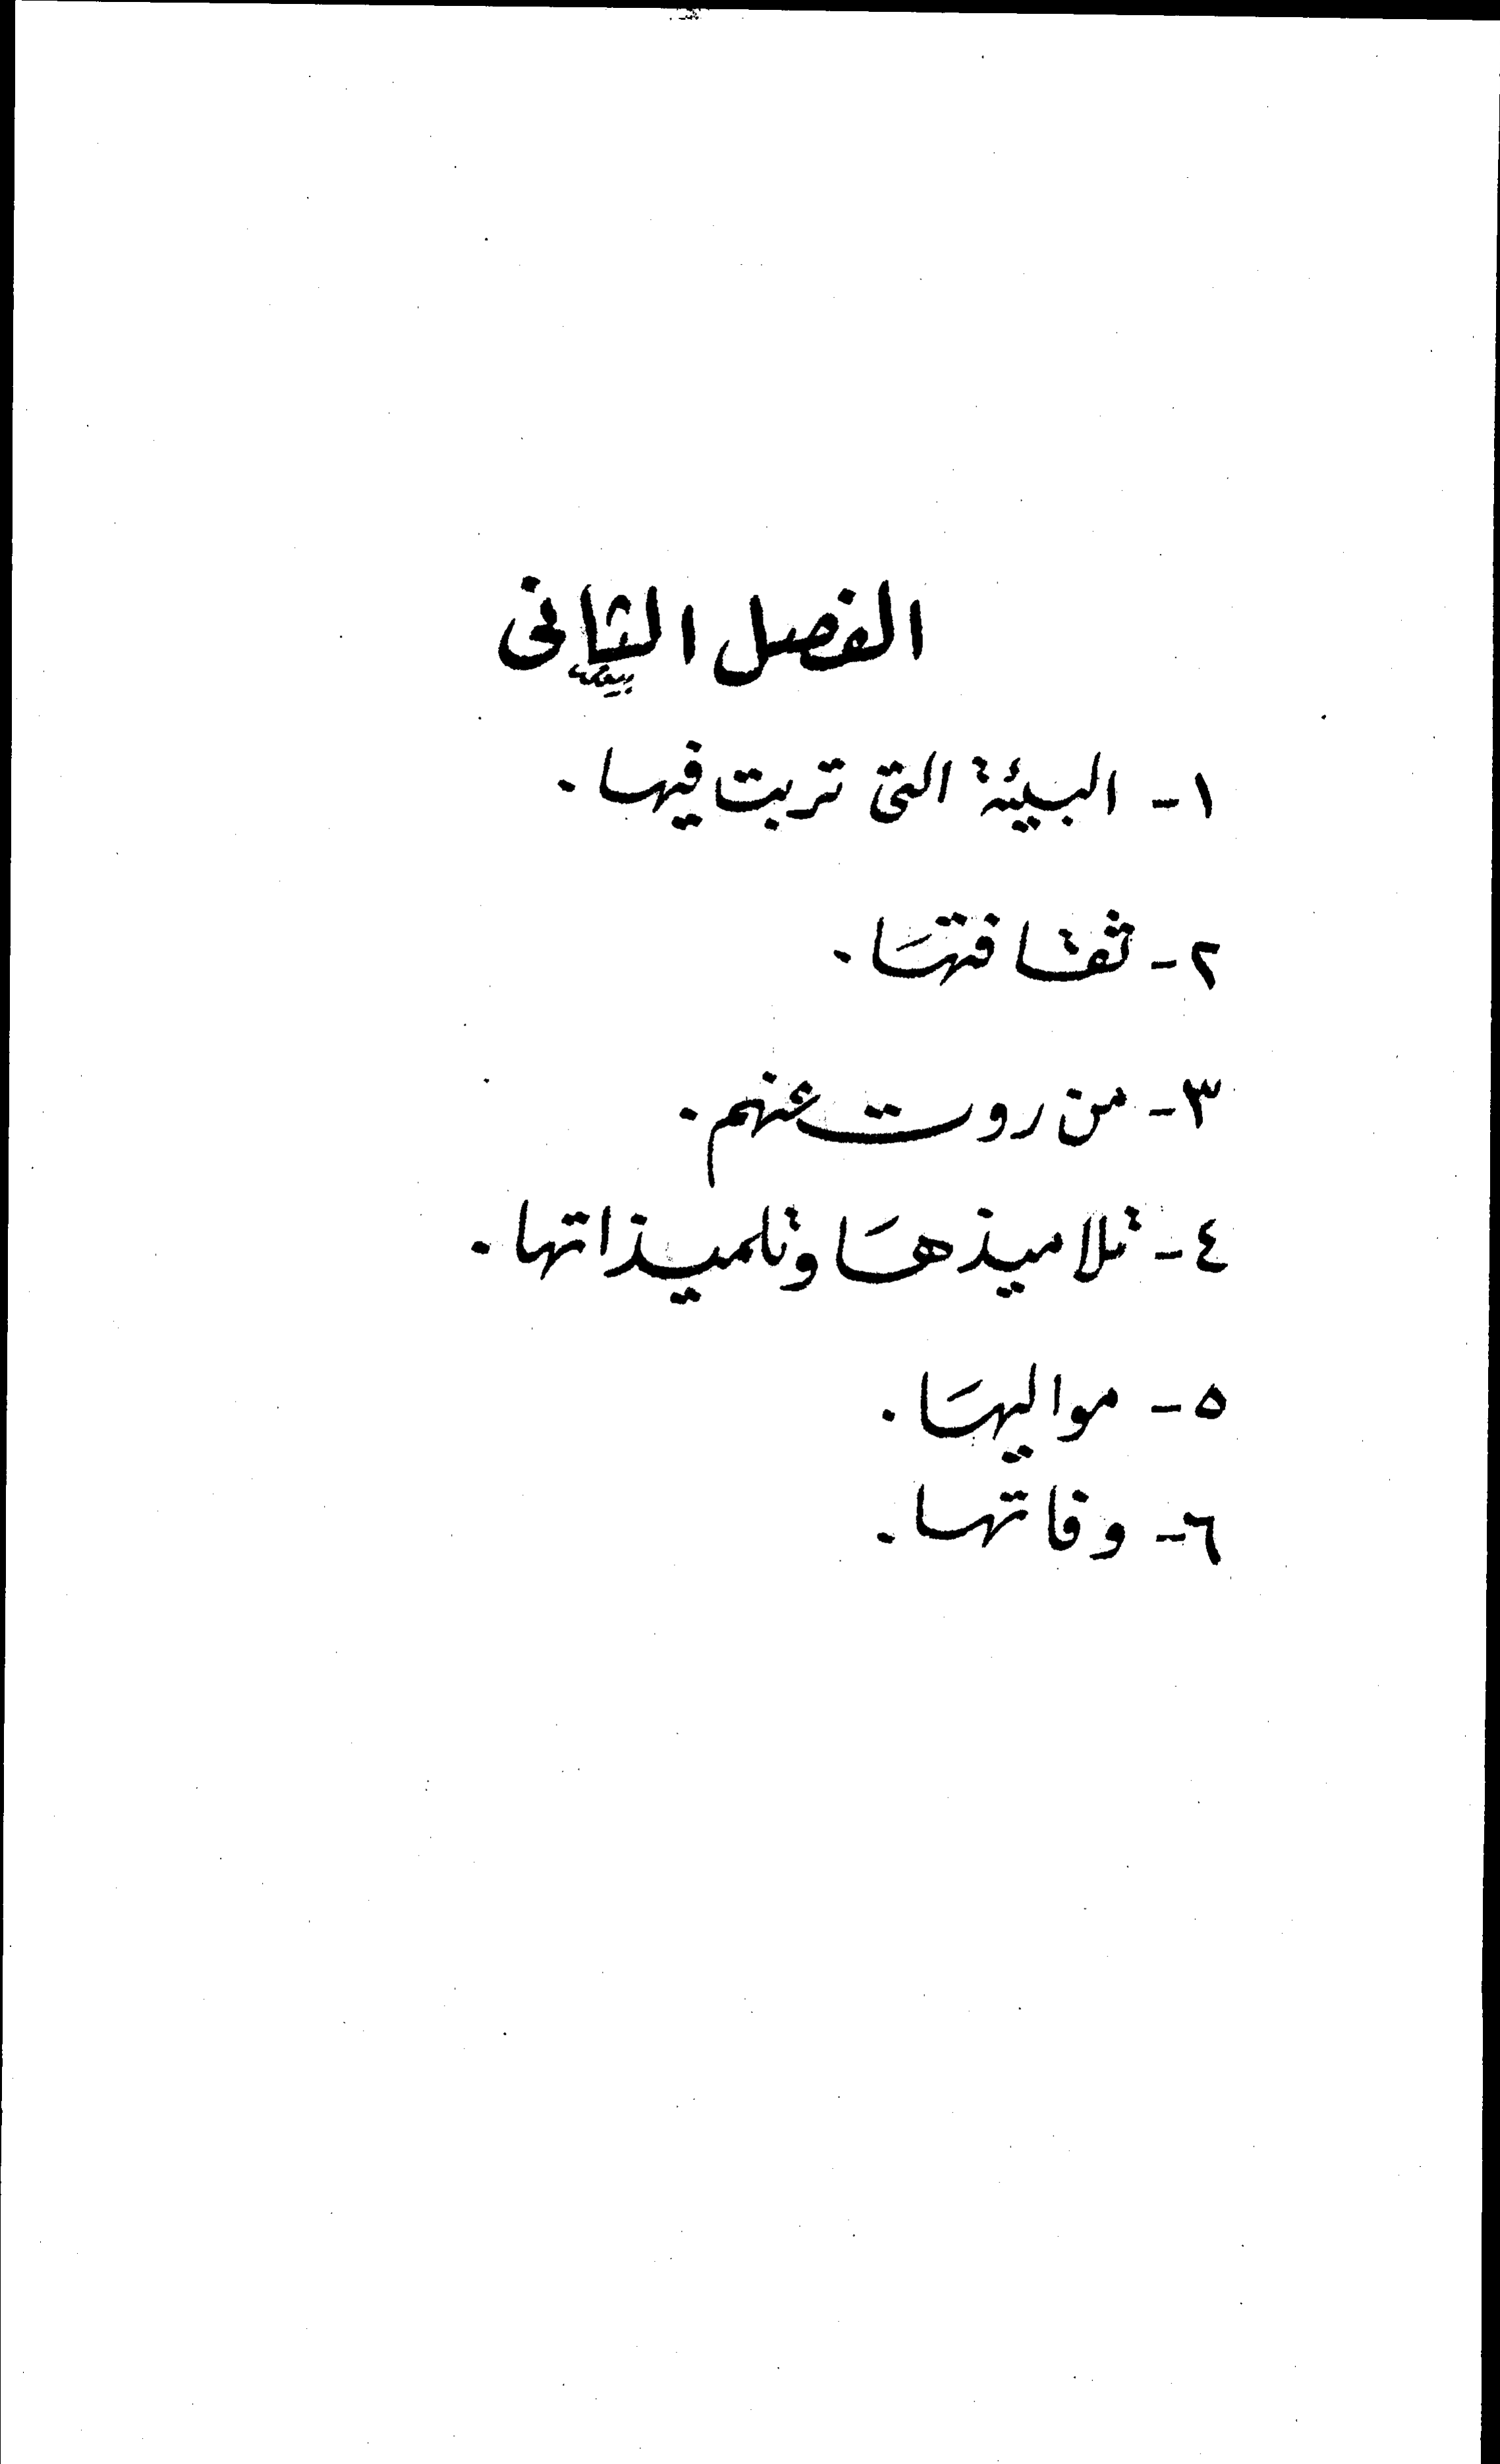 الفصل الثانى
١- البيئة التى تربت فيها.
٢- ثقافتهَا.
٣- من روت عنهم.
٤- تلاميذهَا وتلميذاتها.
٥- مواليهَا.
٦- وفاتها.